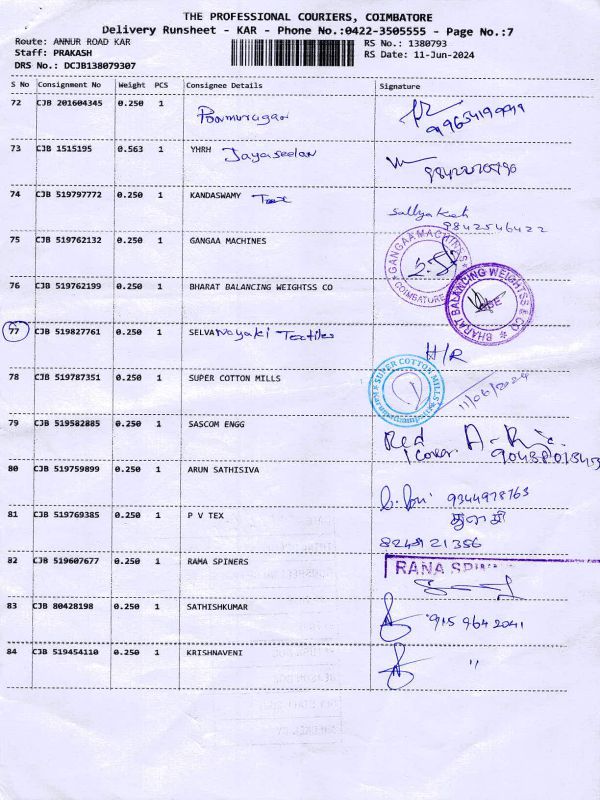 THE PROFESSIONAL COURIERS, COIMBATORE
Delivery Runsheet - KAR - Phone No.:0422-3505555 - Page No.:7
Route: ANNUR ROAD KAR
RS No.: 1380793
Staff: PRAKASH
RS Date: 11-Jun-2024
DRS No.: DCJB138079307
S No Consignment No Weight PCS Consignee Details Signature
72 CJB 201604345 0.250 1 Ponmurugan
73 CJB 1515195 0.563 1 YHRH Jayaseelan
74 CJB 519797772 0.250 1 KANDASWAMY Tex
9842546422
75 CJB 519762132 0.250 1 GANGAA MACHINES
GANGAA MACHINES COIMBATORE
76 CJB 519762199 0.250 1 BHARAT BALANCING WEIGHTSS CO
BHARAT BALANCING WEIGHTSS CO
77 CJB 519827761 0.250 1 SELVANayaki Textiles
H/R
78 CJB 519787351 0.250 1 SUPER COTTON MILLS
SUPER COTTON MILLS
11/06/2024
79 CJB 519582885 0.250 1 SASCOM ENGG
Red
cover
80 CJB 519759899 0.250 1 ARUN SATHISIVA
9344978763
81 CJB 519769385 0.250 1 P V TEX
82 CJB 519607677 0.250 1 RAMA SPINERS
RANA SPIN
83 CJB 80428198 0.250 1 SATHISHKUMAR
915 964 2041
84 CJB 519454110 0.250 1 KRISHNAVENI
"